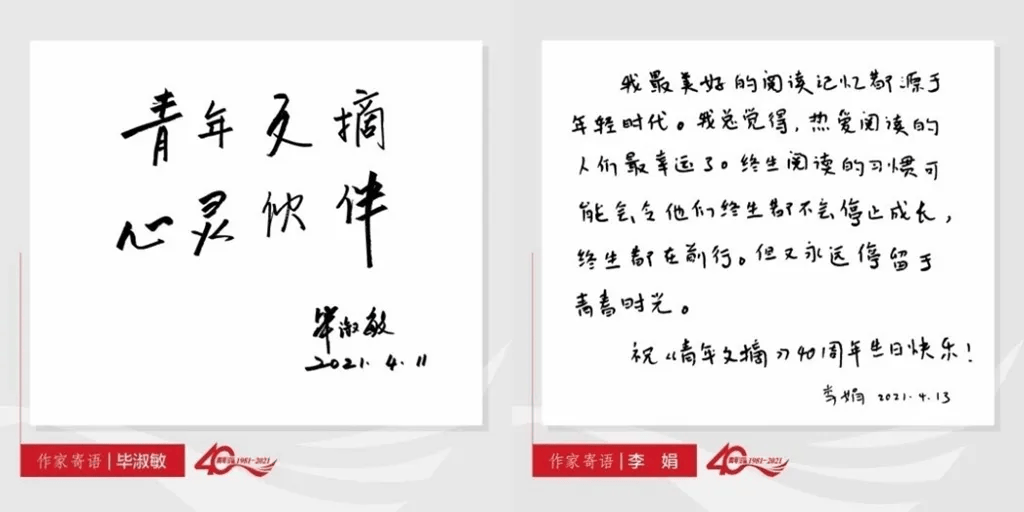 青年文摘
心灵伙伴
毕淑敏
2021.4.11
作家寄语|毕淑敏
40 1981-2021
我最美好的阅读记忆都源于
年轻时代。我总觉得,热爱阅读的
人们最幸运了。终生阅读的习惯可
能会令他们终生都不会停止成长,
终生都在前行。但又永远停留于
青春时光。
祝《青年文摘》40周年生日快乐!
李娟 2021.4.13
作家寄语|李 娟
40 1981-2021